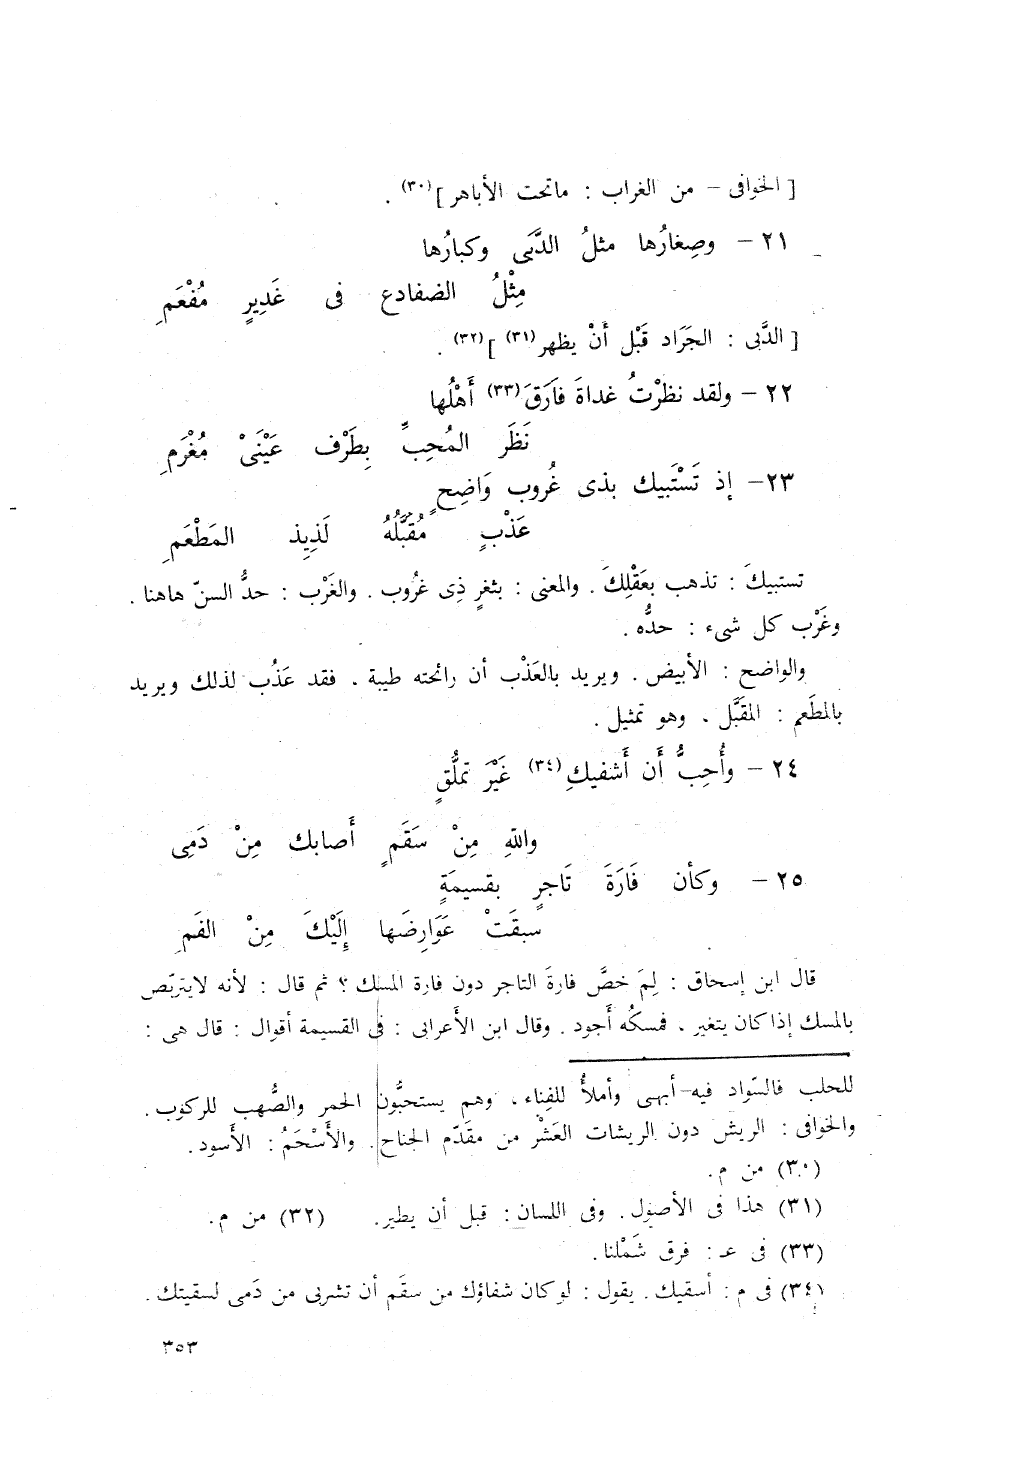 [ الخوافى – من الغراب : ماتحت الأباهر ](٣٠) .
٢١ – وصِغارُها مثلُ الدَّبَى وكبارُها
مِثْلُ الضفادع فى غَدِيرٍ مُفْعَمِ
[ الدَّبى : الجَرَاد قَبْل أَنْ يظهر(٣١) ](٣٢) .
٢٢ – ولقد نظرْتُ غداةَ فاَرَقَ(٣٣) أَهْلُها
نَظَر المُحِبِّ بِطَرْف عَيْنَىْ مُغْرَمِ
٢٣– إذ تَسْتَبيك بذى غُروب وَاضِحٍ
عَذْبٍ مُقَبَّلُهُ لَذِيذِ المَطْعَمِ
تستبيكَ : تذهب بعَقْلِكَ . والمعنى : بثغرٍ ذِى غرُوب . والغَرْب : حدُّ السنّ هاهنا .
وغَرْب كل شىء : حدُّه .
والواضح : الأبيض . ويريد بالعَذْب أن رائحته طيبة . فقد عَذُب لذلك ويريد
بالمطَعم : المقَبَّل . وهو تمثيل .
٢٤ – وأُحِبُّ أَن أَشفيكِ(٣٤) غَيْرَ تملُّقٍ
واللهِ مِنْ سَقَمٍ أَصابك مِنْ دَمِى
٢٥ – وكأن فَارَةَ تَاجرٍ بقسيمَةٍ
سبقَتْ عَوَارِضَها إِلَيْكَ مِنْ الفَمِ
قال ابن إسحاق : لِمَ خصَّ فارةَ التاجر دون فارة المسك ؟ ثم قال : لأنه لايتربّص
بالمسك إذا كان يتغير ، فمسكُه أَجود . وقال ابن الأَعرابى : فى القسيمة أقوال : قال هى :
للحلب فالسّواد فيه أبهى وأملأُ للفِناء . وهم يستحبُّون الحمر والصُّهب للركوب .
والخوافى : الريش دون الريشات العَشْر من مقَدّم الجناح . والأَسْحَمُ : الأَسود .
(٣٠) من م.
(٣١) هذا فى الأصول. وفى اللسان: قبل أن يطير. (٣٢) من م.
(٣٣) فى عـ: فرق شَمْلنا.
(٣٤) فى م: أسقيك. يقول : لو كان شفاؤك من سقَم أن تشربى من دَمى لسقيتك .
٣٥٣